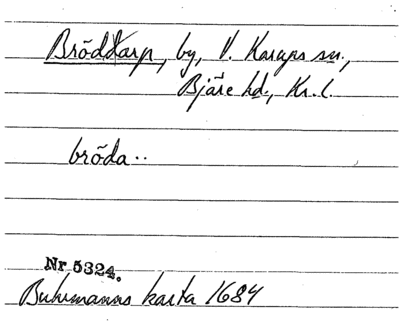 Bröddarp, by, V. Karups sn.,
Bjäre hd., Kr. l.
bröda..
Nr 5324.
Buhrmanns karta 1684